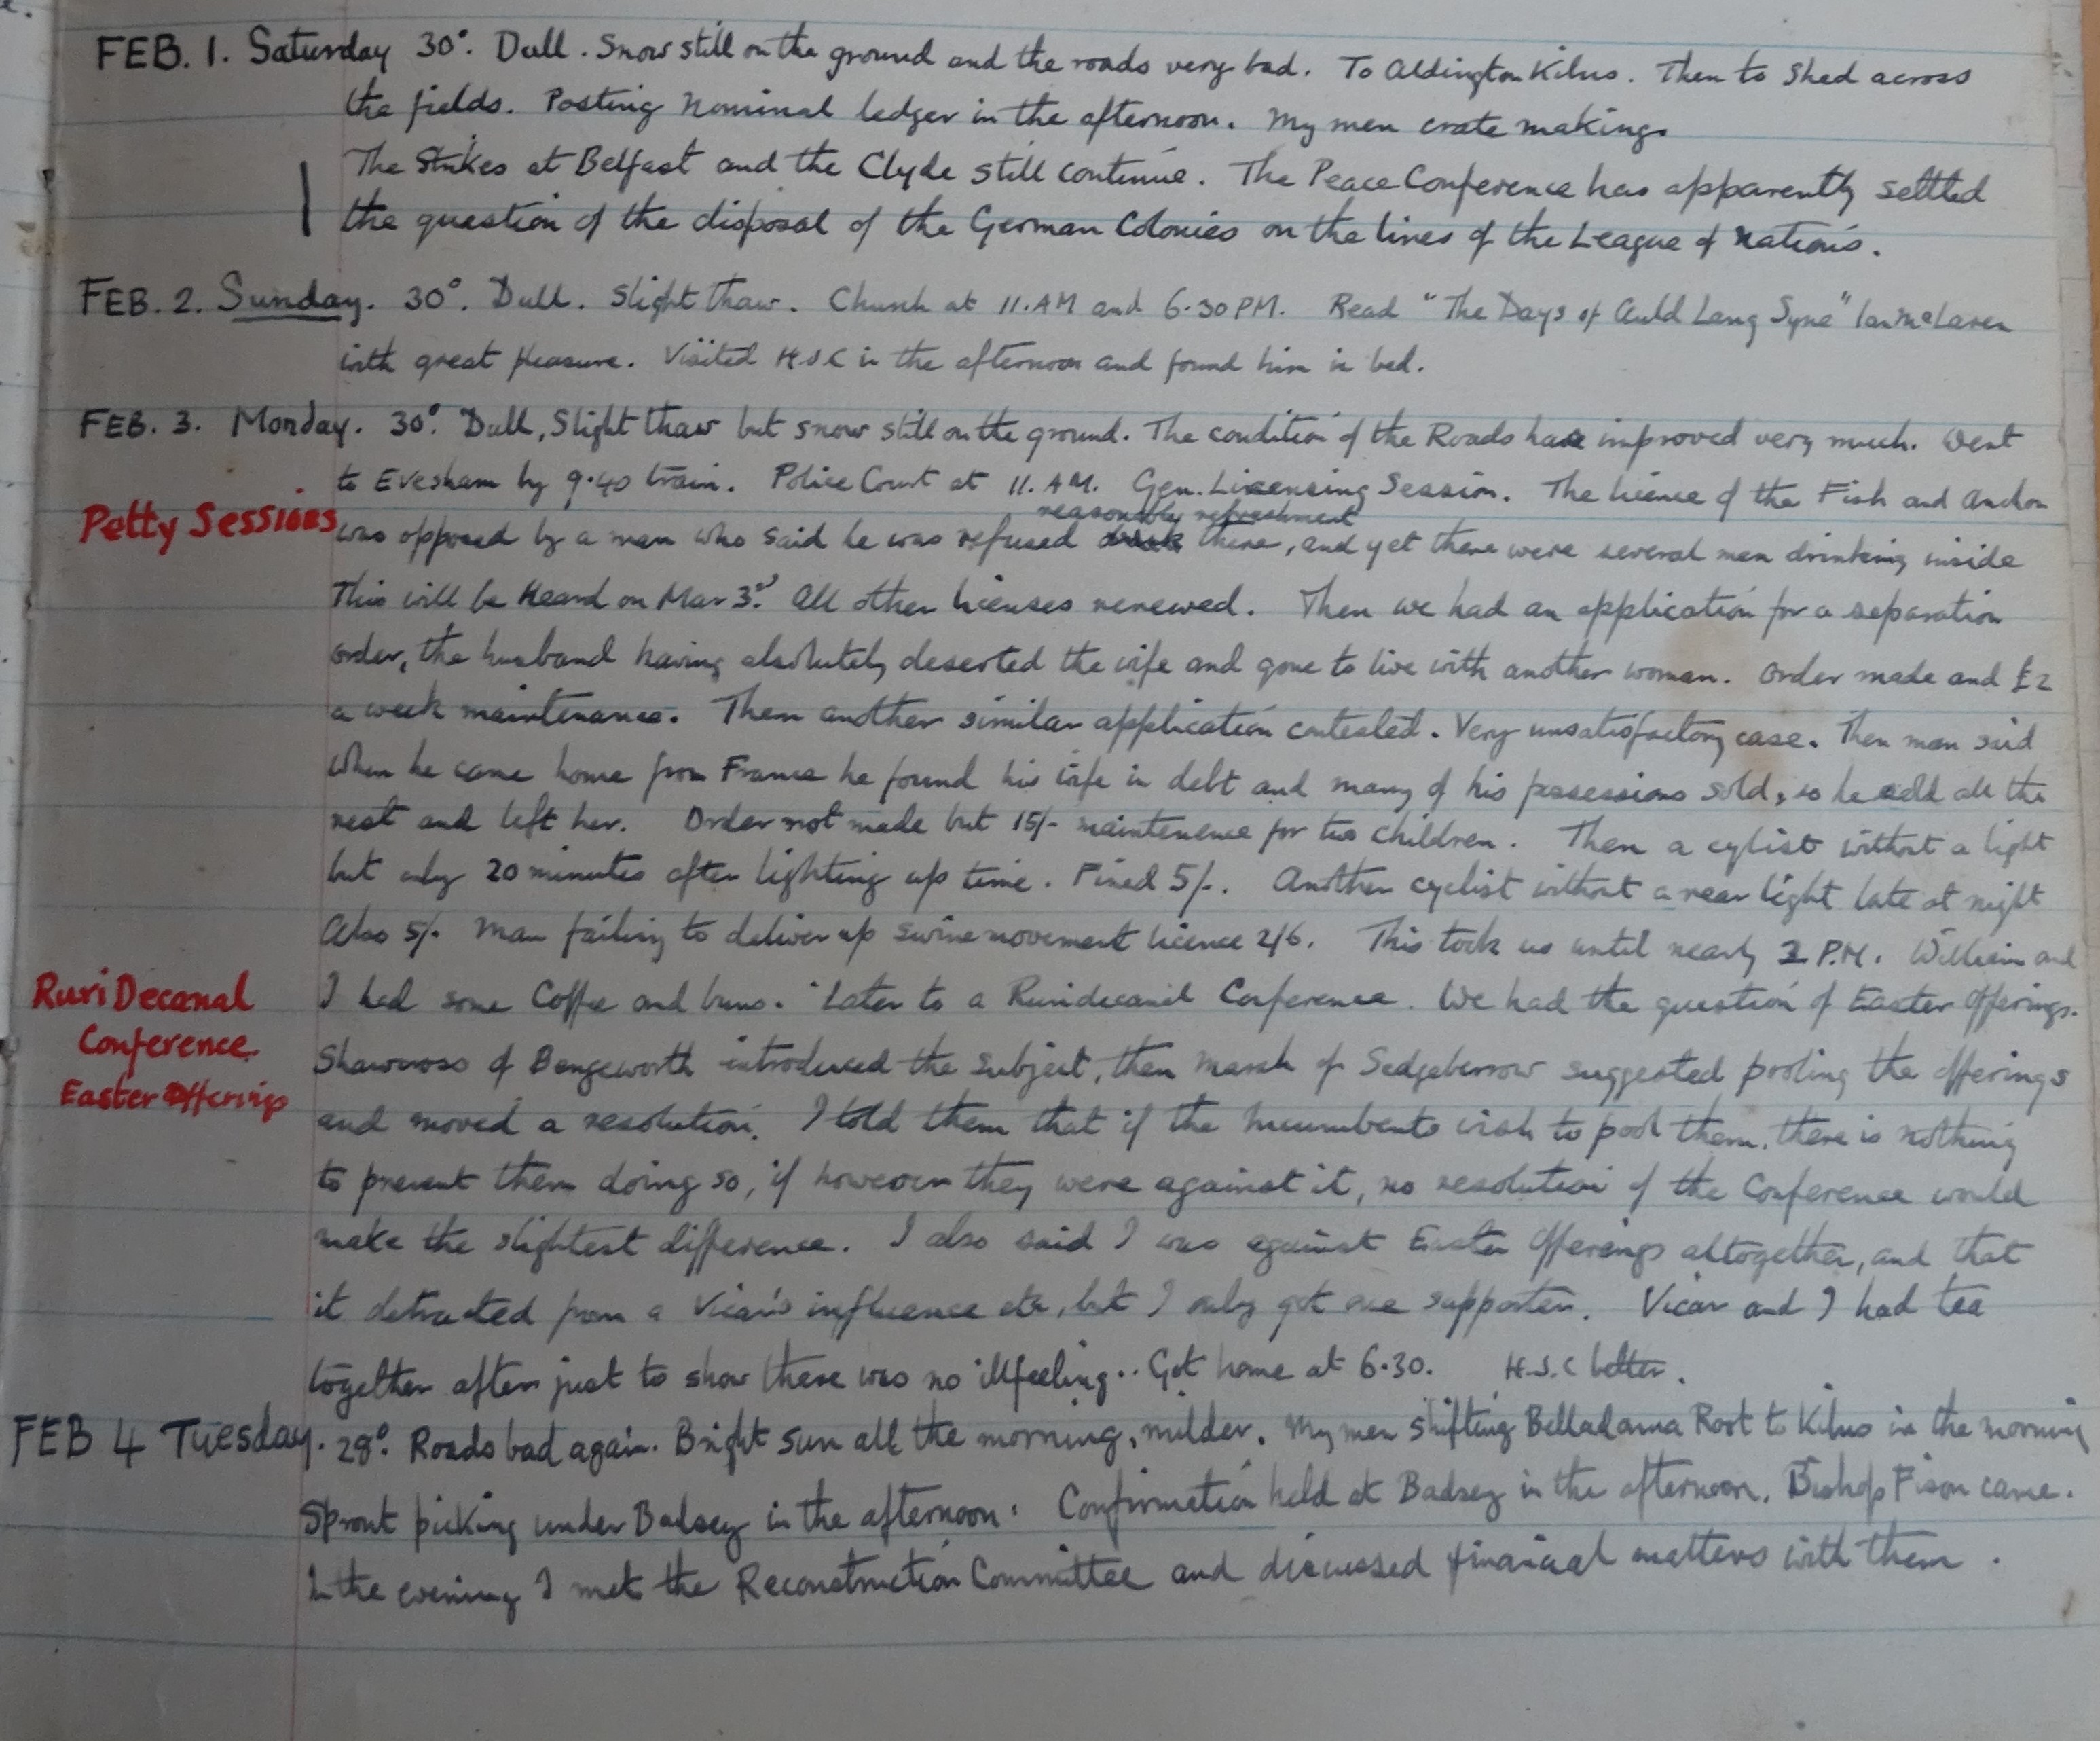 FEB. 1. Saturday 30°. Dull. Snow still on the ground and the roads very bad. To Aldington Kilns. Then to Shed across
the fields. Posting Nominal ledger in the afternoon. My men crate making.
The Strikes at Belfast and the Clyde still continue. The Peace Conference has apparently settled
the question of the disposal of the German Colonies on the lines of the League of Nations.
FEB. 2. Sunday. 30°. Dull. Slight thaw. Church at 11.AM and 6.30PM. Read "The Days of Auld Lang Syne" Ian McLaren
with great pleasure. Visited H.S.C in the afternoon and found him in bed.
FEB. 3. Monday. 30°. Dull, Slight thaw but snow still on the ground. The condition of the Roads have improved very much. Went
to Evesham by 9.40 train. Police Court at 11. AM. Gen. Licensing Session. The licence of the Fish and Anchor
Petty Sessions
reasonably refreshment
was opposed by a man who said he was refused there, and yet there were several men drinking inside
This will be Heard on Mar 3rd. All other licenses renewed. Then we had an application for a separation
order, the husband having absolutely deserted the wife and gone to live with another woman. Order made and £2
a week maintenance. Then another similar application contested. Very unsatisfactory case. Then man said
when he came home from France he found his wife in debt and many of his possessions sold, so he sold all the
rest and left her. Order not made but 15/- maintenence for two children. Then a cylist without a light
but only 20 minutes after lighting up time. Fined 5/-. Another cyclist without a rear light late at night
Also 5/- Man failing to deliver up swine movement licence 2/6. This took us until nearly 2 P.M. William and
Ruri Decanal
Conference.
Easter Offerings
I had some Coffee and buns. Later to a Ruridecanal Conference. We had the question of Easter Offerings.
Shawcross of Bengeworth introduced the subject, then March of Sedgeberrow suggested pooling the offerings
and moved a resolution. I told them that if the Incumbents wish to pool them, there is nothing
to prevent them doing so, if however they were against it, no resolution of the Conference would
make the slightest difference. I also said I was against Easter Offerings altogether, and that
it detracted from a Vicar's influence etc, but I only got one supporter. Vicar and I had tea
together after just to show there was no illfeeling.. Got home at 6.30. H.S.C better.
FEB 4 Tuesday. 28°. Roads bad again. Bright sun all the morning, milder. My men shifting Belladanna Root to Kilns in the morning
Sprout picking under Badsey in the afternoon. Confirmation held at Badsey in the afternoon. Bishop Fison came.
In the evening I met the Reconstruction Committee and discussed financial matters with them.